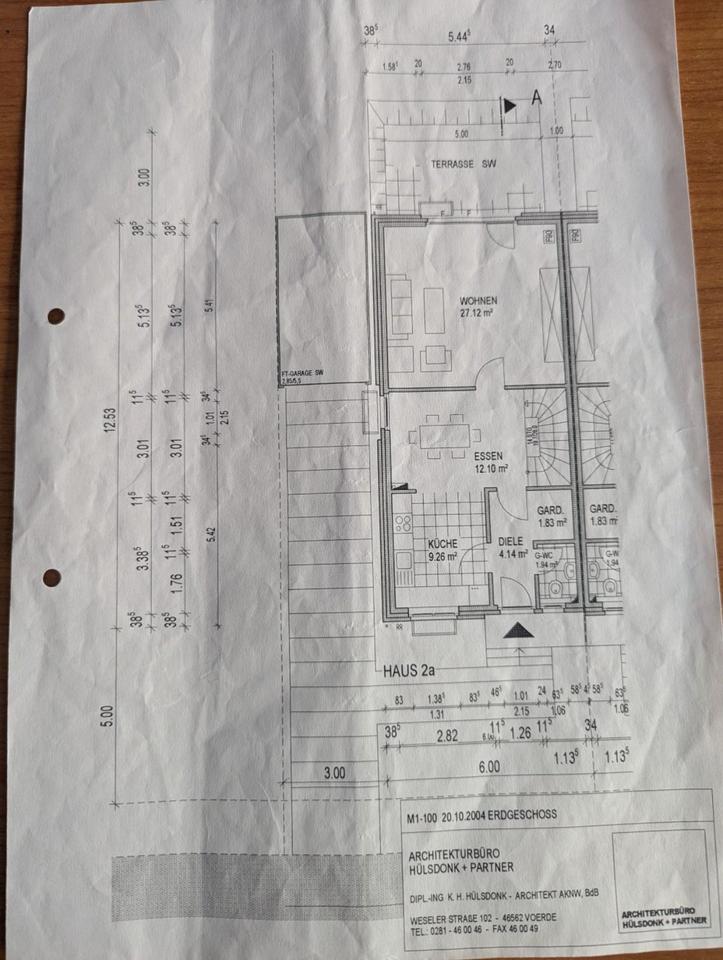 38⁵ 5.44⁵ 34
1.58⁵ 20 2.76 20 2.70
2.15
A
5.00 1.00
TERRASSE SW
3.00
38⁵ 38⁵
F90 F90
WOHNEN
27.12 m²
5.13⁵ 5.13⁵ 5.41
FT-GARAGE SW
12.53
11⁵ 11⁵ 34⁵
3.01 3.01 1.01 2.15
34⁵
ESSEN
12.10 m²
11⁵ 11⁵
GARD. GARD.
1.83 m² 1.83 m²
1.51 5.42
KÜCHE DIELE
9.26 m² 4.14 m²
3.38⁵ 11⁵
G-WC G-W
1.94 m² 1.94
1.76
38⁵ 38⁵
HAUS 2a
83 1.38⁵ 83⁵ 46⁵ 1.01 24 63⁵ 58⁵ 4⁵ 58⁵ 63⁵
1.31 2.15 1.06 1.06
5.00
38⁵ 2.82 11⁵ 1.26 11⁵ 34
3.00 6.00 1.13⁵ 1.13⁵
M1-100 20.10.2004 ERDGESCHOSS
ARCHITEKTURBÜRO
HÜLSDONK + PARTNER
DIPL.-ING K. H. HÜLSDONK - ARCHITEKT AKNW, BdB
WESELER STRAßE 102 - 46562 VOERDE
TEL.: 0281 - 46 00 46 - FAX 46 00 49
ARCHITEKTURBÜRO
HÜLSDONK + PARTNER